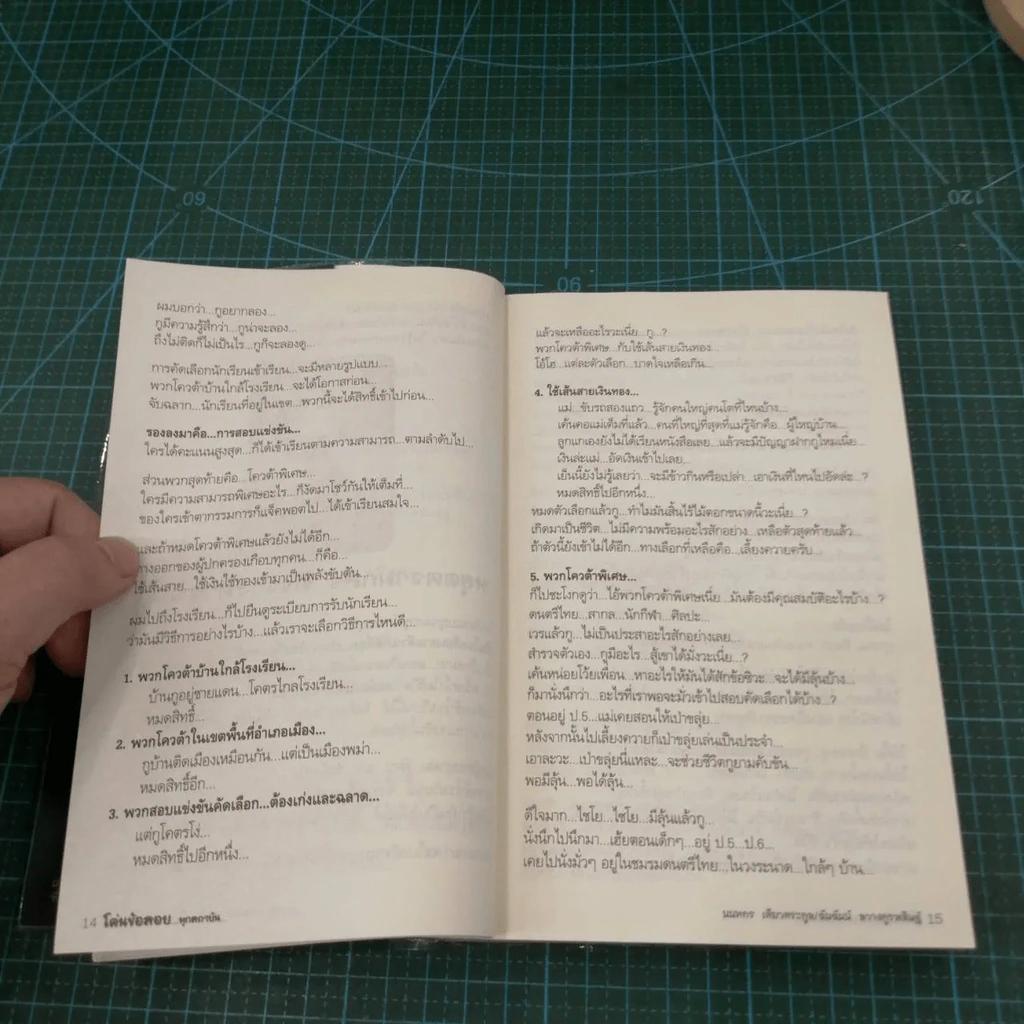 ผมบอกว่า...กูอยากลอง...
กูมีความรู้สึกว่า...กูน่าจะลอง...
ถึงไม่ติดก็ไม่เป็นไร...กูก็จะลองดู...
การคัดเลือกนักเรียนเข้าเรียน...จะมีหลายรูปแบบ...
พวกโควต้าบ้านใกล้โรงเรียน...จะได้โอกาสก่อน...
จับฉลาก...นักเรียนที่อยู่ในเขต...พวกนี้จะได้สิทธิ์เข้าไปก่อน...
รองลงมาคือ...การสอบแข่งขัน...
ใครได้คะแนนสูงสุด...ก็ได้เข้าเรียนตามความสามารถ...ตามลำดับไป...
ส่วนพวกสุดท้ายคือ...โควต้าพิเศษ...
ใครมีความสามารถพิเศษอะไร...ก็งัดมาโชว์กันให้เต็มที่...
ของใครเข้าตากรรมการก็แจ็คพอตไป...ได้เข้าเรียนสมใจ...
และถ้าหมดโควต้าพิเศษแล้วยังไม่ได้อีก...
ทางออกของผู้ปกครองเกือบทุกคน...ก็คือ...
ใช้เส้นสาย...ใช้เงินใช้ทองเข้ามาเป็นพลังขับดัน...
ผมไปถึงโรงเรียน...ก็ไปยืนดูระเบียบการรับนักเรียน...
ว่ามันมีวิธีการอย่างไรบ้าง...แล้วเราจะเลือกวิธีการไหนดี...
1. พวกโควต้าบ้านใกล้โรงเรียน...
บ้านกูอยู่ชายแดน...โคตรไกลโรงเรียน...
หมดสิทธิ์...
2. พวกโควต้าในเขตพื้นที่อำเภอเมือง...
กูบ้านติดเมืองเหมือนกัน...แต่เป็นเมืองพม่า...
หมดสิทธิ์อีก...
3. พวกสอบแข่งขันคัดเลือก...ต้องเก่งและฉลาด...
แต่กูโคตรโง่...
หมดสิทธิ์ไปอีกหนึ่ง...
14 โด่นข้อลอย...ทุกสถาบัน
แล้วจะเหลืออะไรวะเนี่ย...กู...?
พวกโควต้าพิเศษ...กับใช้เส้นสายเงินทอง...
โอ้โฮ...แต่ละตัวเลือก...บาดใจเหลือเกิน...
4. ใช้เส้นสายเงินทอง...
แม่...ขับรถสองแถว...รู้จักคนใหญ่คนโตที่ไหนบ้าง...
เค้นคอแม่เต็มที่แล้ว...คนที่ใหญ่ที่สุดที่แม่รู้จักคือ...ผู้ใหญ่บ้าน...
ลูกแกเองยังไม่ได้เรียนหนังสือเลย...แล้วจะมีปัญญาฝากกูไหมเนี่ย...
เงินล่ะแม่...อัดเงินเข้าไปเลย...
เย็นนี้ยังไม่รู้เลยว่า...จะมีข้าวกินหรือเปล่า...เอาเงินที่ไหนไปอัดล่ะ...?
หมดสิทธิ์ไปอีกหนึ่ง...
หมดตัวเลือกแล้วกู...ทำไมมันสิ้นไร้ไม้ตอกขนาดนี้วะเนี่ย...?
เกิดมาเป็นชีวิต...ไม่มีความพร้อมอะไรสักอย่าง...เหลือตัวสุดท้ายแล้ว...
ถ้าตัวนี้ยังเข้าไม่ได้อีก...ทางเลือกที่เหลือคือ...เลี้ยงควายครับ...
5. พวกโควต้าพิเศษ...
ก็ไปชะโงกดูว่า...ไอ้พวกโควต้าพิเศษเนี่ย...มันต้องมีคุณสมบัติอะไรบ้าง...?
ดนตรีไทย...สากล...นักกีฬา...ศิลปะ...
เวรแล้วกู...ไม่เป็นประสาอะไรสักอย่างเลย...
สำรวจตัวเอง...กูมีอะไร...สู้เขาได้มั่งวะเนี่ย...?
เค้นหน่อยโว้ยเพื่อน...หาอะไรให้มันได้สักข้อซิวะ...จะได้มีลุ้นบ้าง...
ก็มานั่งนึกว่า...อะไรที่เราพอจะมั่วเข้าไปสอบคัดเลือกได้บ้าง...?
ตอนอยู่ ป.5...แม่เคยสอนให้เป่าขลุ่ย...
หลังจากนั้นไปเลี้ยงควายก็เป่าขลุ่ยเล่นเป็นประจำ...
เอาละวะ...เป่าขลุ่ยนี่แหละ...จะช่วยชีวิตกูยามคับขัน...
พอมีลุ้น...พอได้ลุ้น...
ดีใจมาก...ไชโย...ไชโย...มีลุ้นแล้วกู...
นั่งนึกไปนึกมา...เฮ้ยตอนเด็กๆ...อยู่ ป.5...ป.6...
เคยไปนั่งมั่วๆ อยู่ในชมรมดนตรีไทย...ในวงระนาด...ใกล้ๆ บ้าน...
15